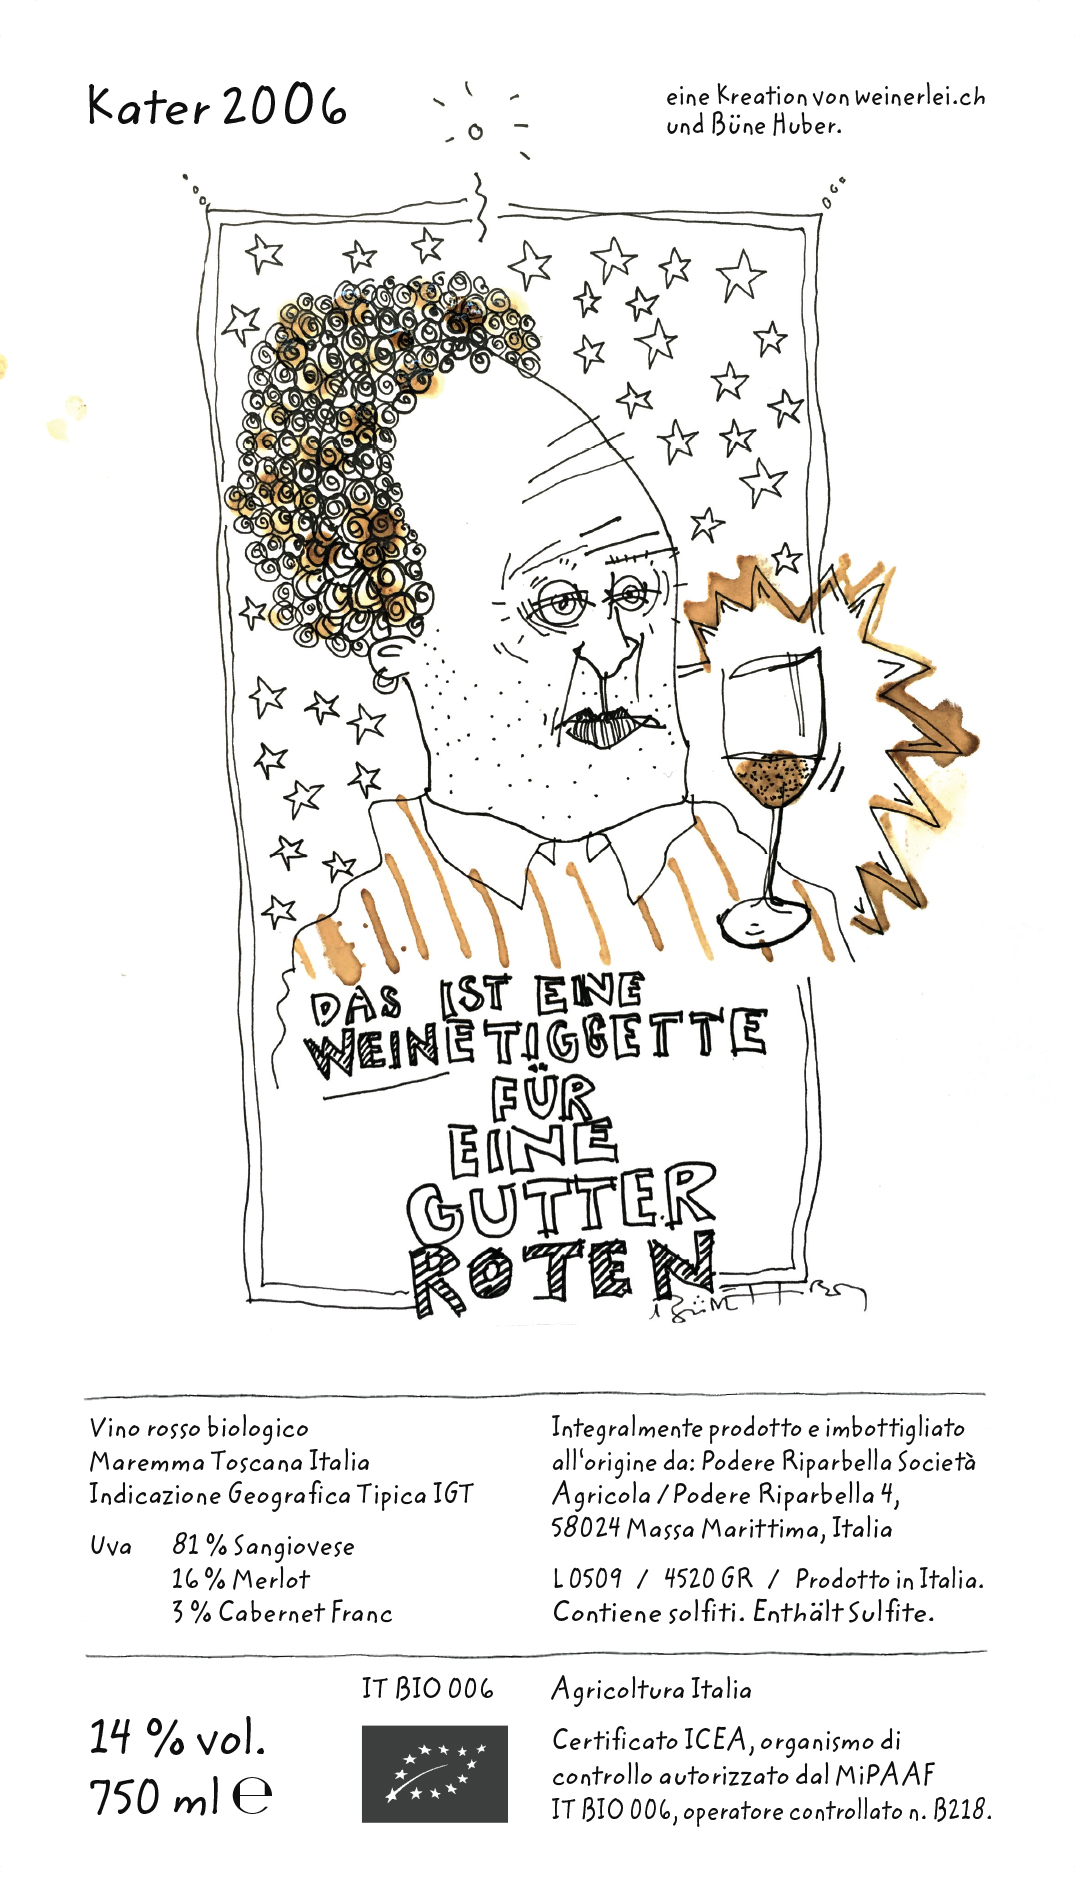 Kater 2006
eine Kreation von weinerlei.ch
und Büne Huber.
DAS IST EINE
WEINETIGGETTE
FÜR
EINE
GUTTER
ROTEN
Vino rosso biologico
Maremma Toscana Italia
Indicazione Geografica Tipica IGT
Uva 81 % Sangiovese
16 % Merlot
3 % Cabernet Franc
Integralmente prodotto e imbottigliato
all'origine da: Podere Riparbella Società
Agricola / Podere Riparbella 4,
58024 Massa Marittima, Italia
L 0509 / 4520 GR / Prodotto in Italia.
Contiene solfiti. Enthält Sulfite.
14 % vol.
750 ml ℮
IT BIO 006
Agricoltura Italia
Certificato ICEA, organismo di
controllo autorizzato dal MiPAAF
IT BIO 006, operatore controllato n. B218.